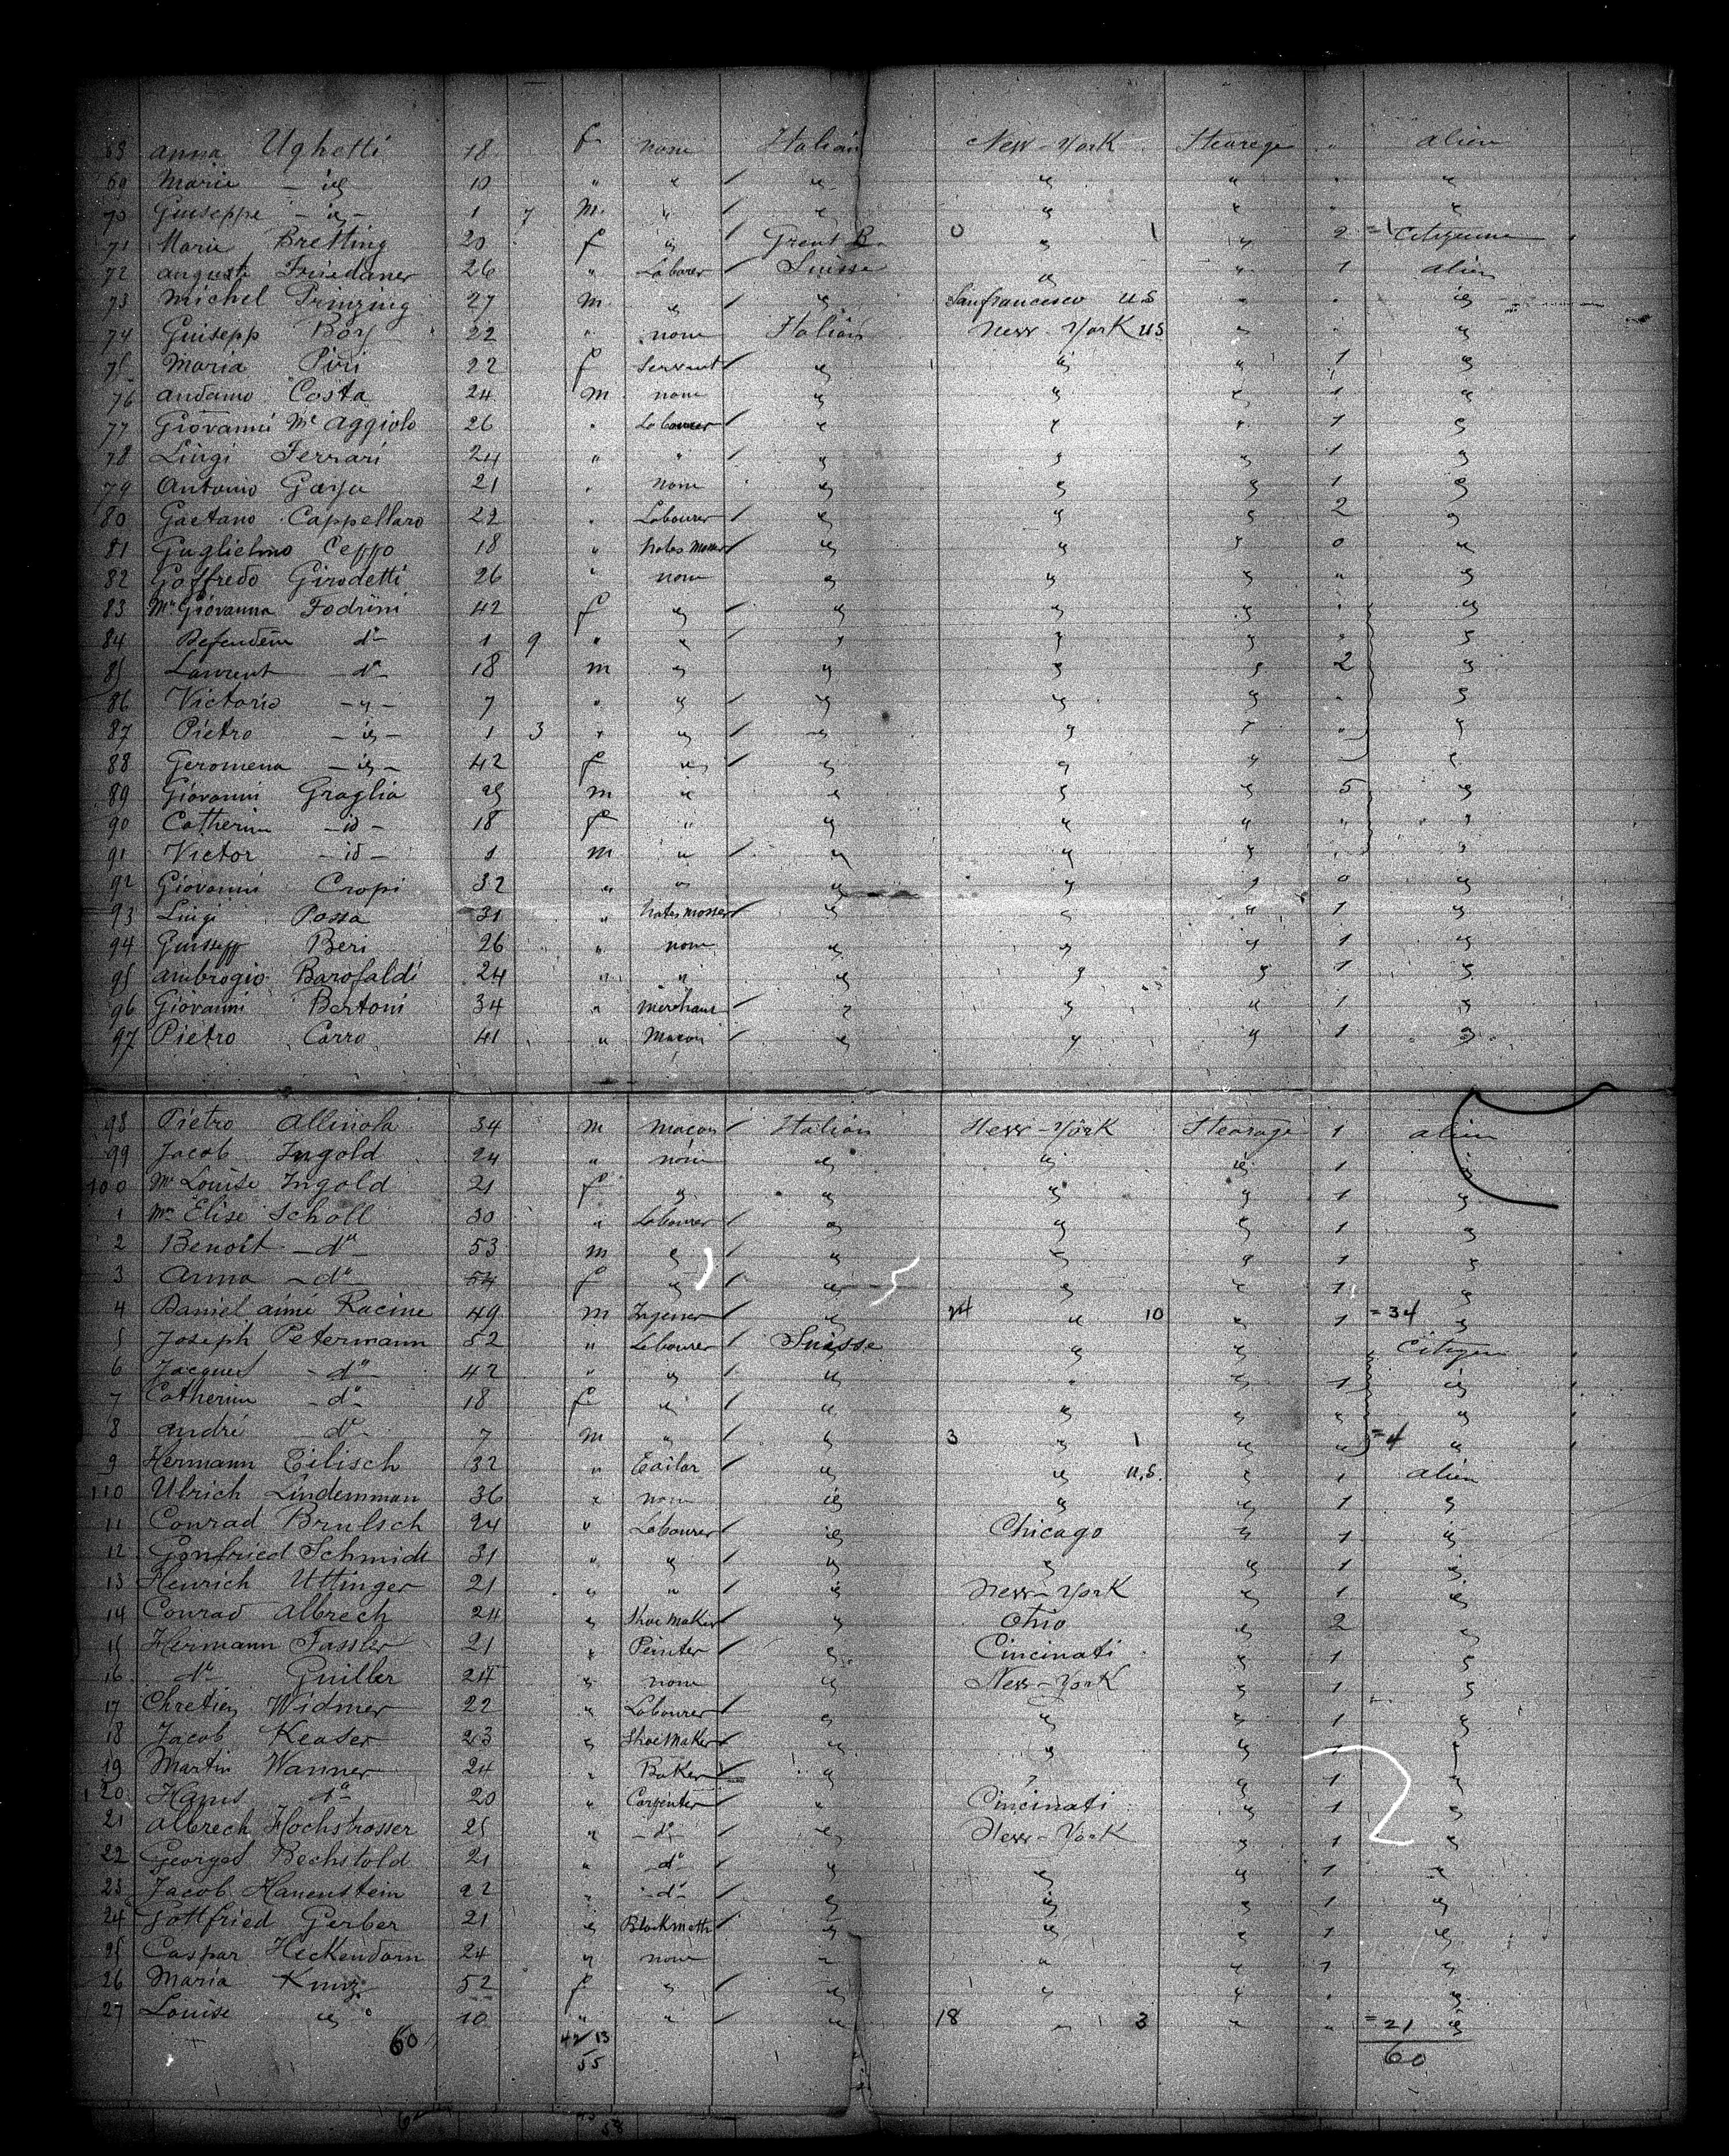 68 Anna Ughetti 18 f none Italian New-York Stearage " alien
69 Marie - id 10 " " " " " " "
70 Guiseppe - id - 1 7 m. " " " " " "
71 Marie Bretting 20 f " Great B. 0 " 1 " 2 = 1 Citizenne
72 Auguste Friedaner 26 " Laborer Suisse " " 1 alien
73 Michel Prinzing 27 m " " Sanfrancesco US " " id
74 Guisepp 22 " none Italian New-York US " " "
75 Maria Piri 22 f Servant " " " 1 "
76 Costa 24 m none " " " 1 "
77 Giovanni Mc Aggiolo 26 " Labourer " " " 1 "
78 Luigi Ferrari 24 " " " " " 1 "
79 Antonio 21 " none " " " 1 "
80 Gaetano Cappellaro 22 " Labourer " " " 2 "
81 Guglielmo Ceppo 18 " " " " 0 "
82 Goffredo Girodetti 26 " none " " " " "
83 Me Giovanna Fodrini 42 f " " " " " "
84 do 1 9 " " " " " " "
85 Laurent do 18 m " " " " 2 "
86 Victorio - " - 7 " " " " " " "
87 Pietro - id - 1 3 " " " " " " "
88 Geromena - id - 42 f " " " " "
89 Giovanni Graglia m " " " " 5 "
90 Catherin - id - 18 f " " " " " "
91 Victor - id - 1 m " " " " " "
92 Giovanni Cropi 32 " " " " " 0 "
93 Luigi Possa 31 " " " " 1 "
94 Guisepp Beri 26 " none " " " 1 "
95 Ambrogio Barofaldi 24 " " " " " 1 "
96 Giovanni Bertoni 34 " merchant " " " 1 "
97 Pietro Carra 41 " Macon " " " 1 "
98 Pietro Allinola 34 m macon Italian New-York Stearage 1 alien
99 Jacob Ingold 24 " none " " " 1 "
100 Me Louise Ingold 21 f " " " " 1 "
1 Me Elise Scholl 30 " Labourer " " " 1 "
2 Benoit - do 53 m " " " " 1 "
3 Anna - do 54 f " " " " 1 "
4 Daniel aimé Racine 49 m Ingener " 24 " 10 " 1 = 34 "
5 Joseph Petermann 52 " Labourer Suisse " " Citizen
6 Jacques - do 42 " " " " " 1 "
7 Catherin - do - 18 f " " " " " "
8 André do 7 m " " 3 " 1 " " = 4 "
9 Hermann Eilisch 32 " Tailor " " U.S. " 1 alien
110 Ulrich Lindemman 36 " none " " " 1 "
11 Conrad Brulsch 24 " Labourer " Chicago " 1 "
12 Gonfried Schmidt 31 " " " " " 1 "
13 Henrich Uttinger 21 " " " New-York " 1 "
14 Conrad Albrech 24 " Shoe Maker " Ohio " 2 "
15 Hermann Fassler 21 " Peinter " Cincinati " 1 "
16 do Guiller 24 " none " New-York " 1 "
17 Chretien Widmer 22 " Labourer " " " 1 "
18 Jacob Keaser 23 " Shoe Maker " " " 1 "
19 Martin Wanner 24 " Baker " " " 1 "
120 Hans do 20 " Carpenter " Cincinati " 1 "
21 Albrech Hochstrasser 25 " - do - " New-York " 1 "
22 Georges Bechstold 21 " - do " " " 1 "
23 Jacob Hauenstein 22 " - do - " " " 1 "
24 Gottfried Gerber 21 " Blackmeth " " " 1 "
25 Caspar Heckendorn 24 " none " " " 1 "
26 Maria Kunz 52 f " " " " " "
27 Louise id 10 " " " 18 " 3 " " = 21 "
60 42/13 60
55
58